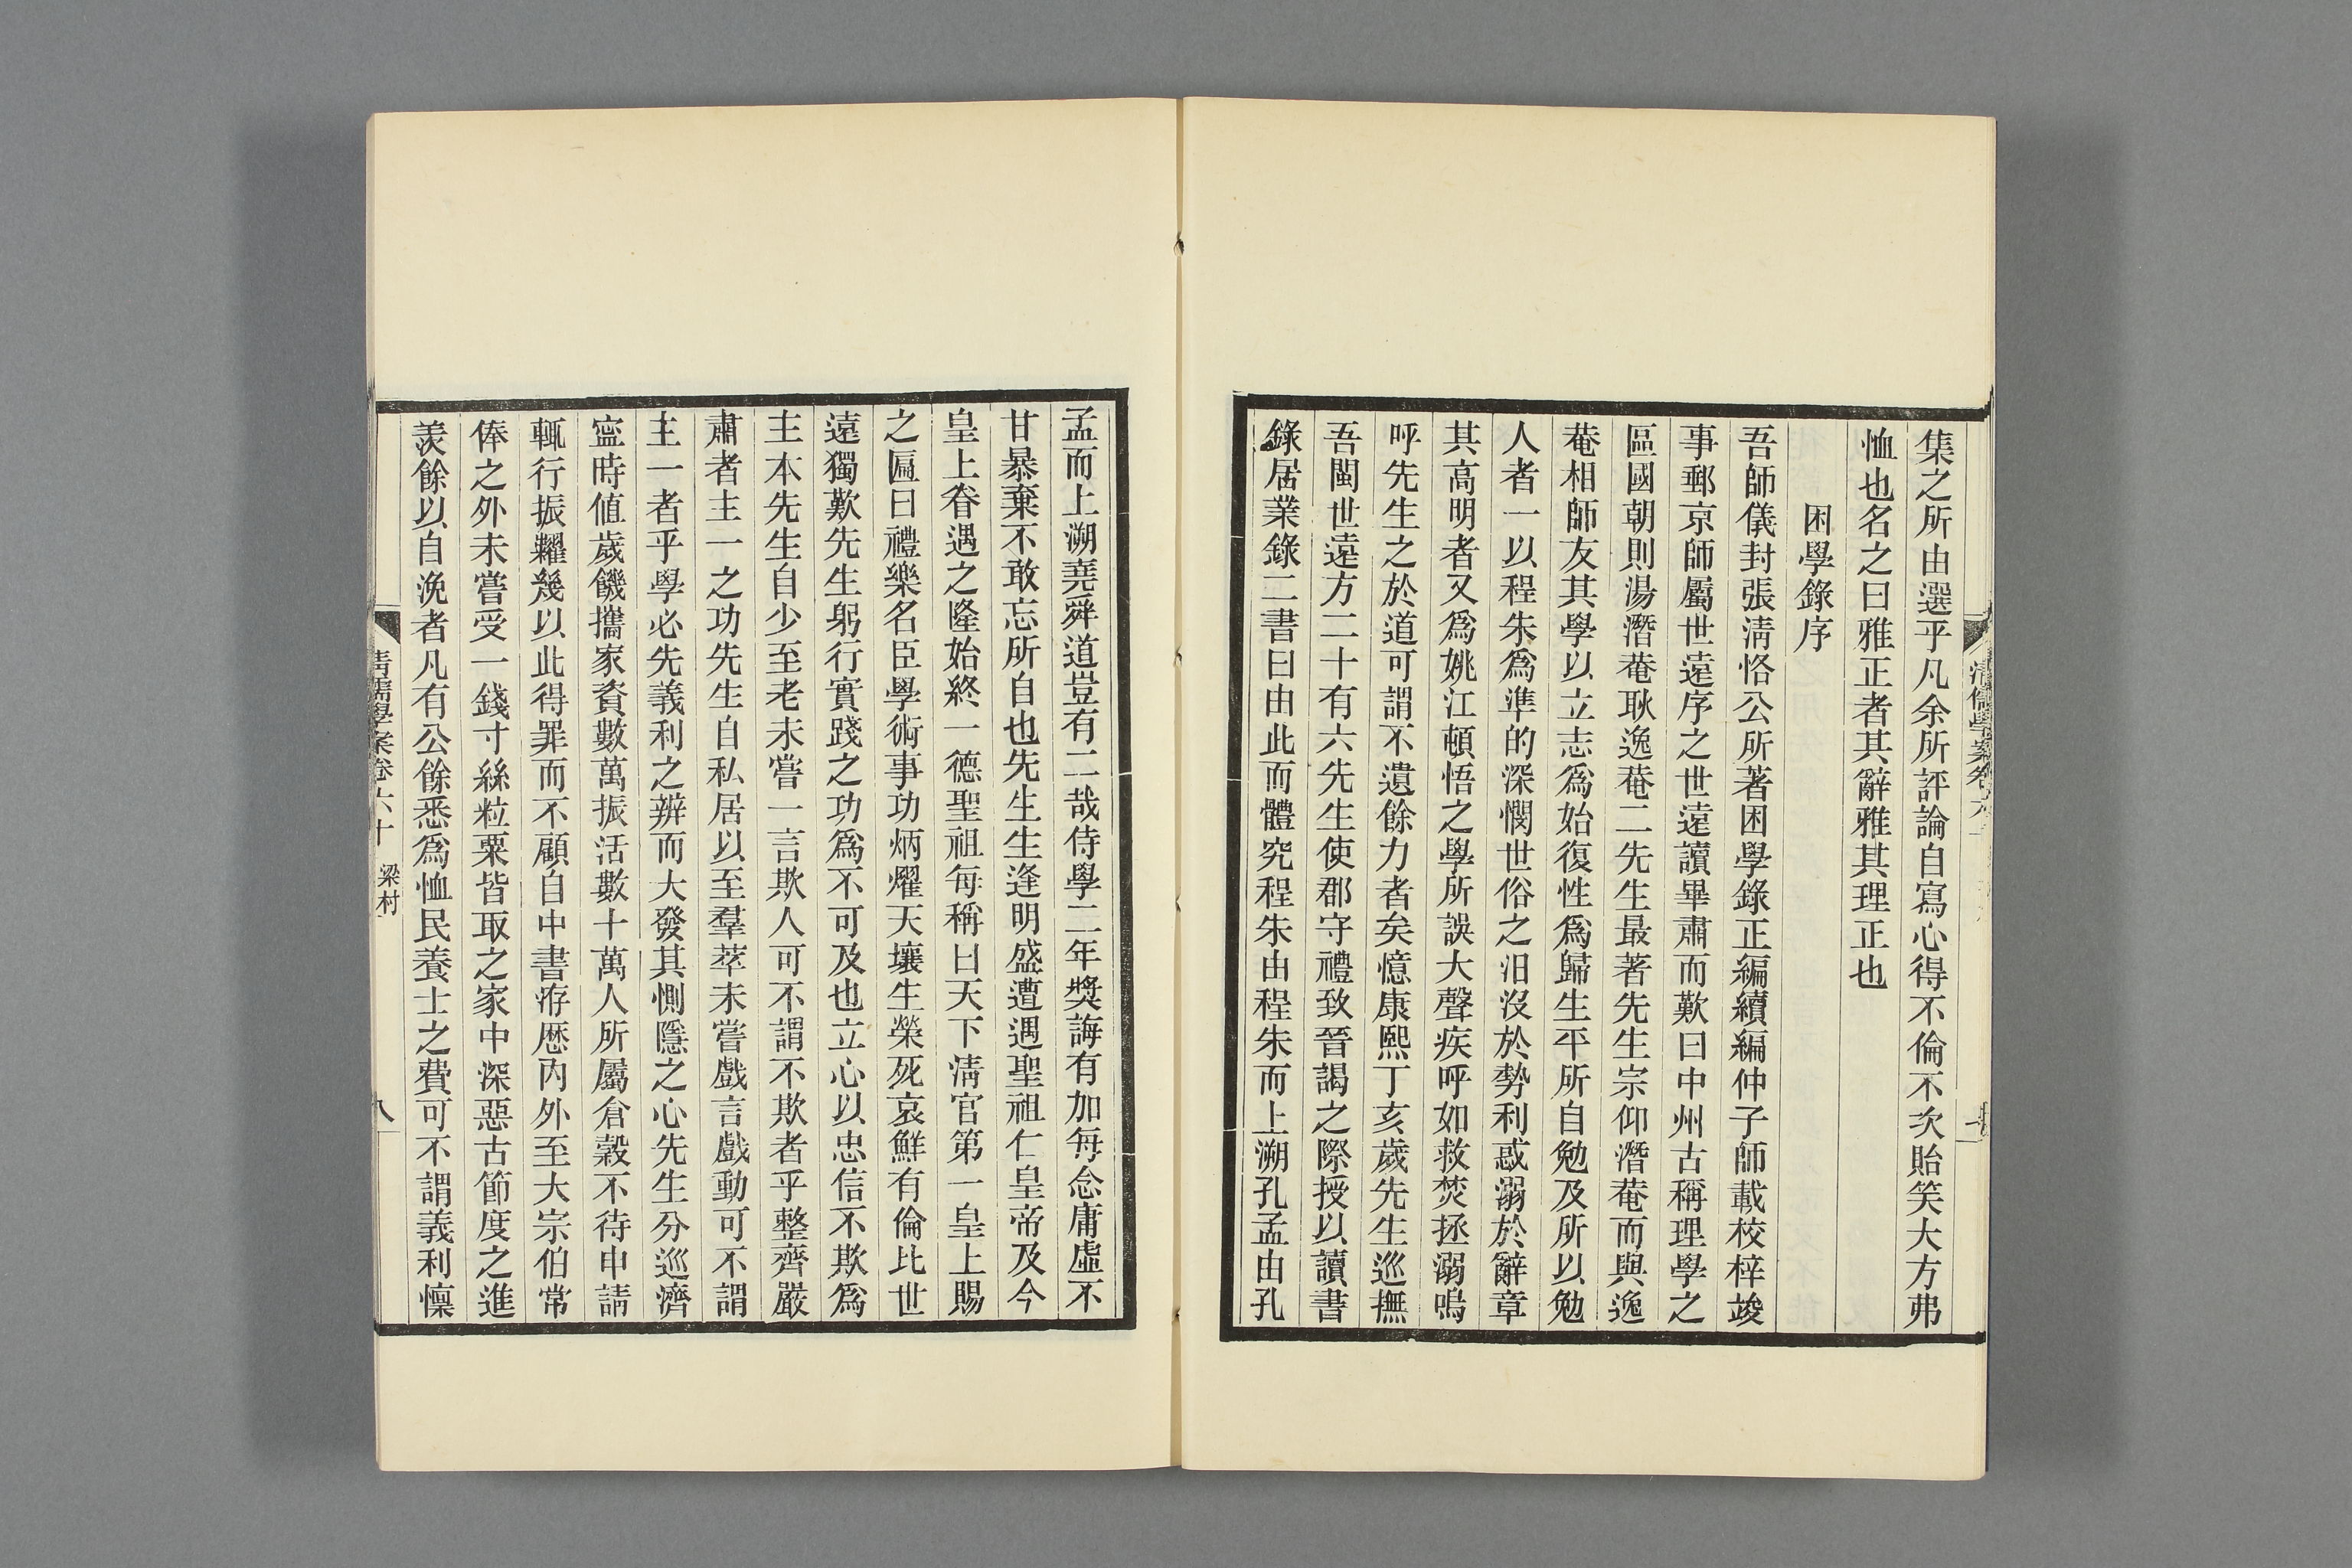 集之所由選乎凡余所評論自寫心得不倫不次貽笑大方弗
恤也名之曰雅正者其辭雅其理正也
困學錄序
吾師儀封張淸恪公所著困學錄正編續編仲子師載校梓竣
事郵京師屬世遠序之世遠讀畢肅而歎曰中州古稱理學之
區國朝則湯潛菴耿逸菴二先生最著先生宗仰潛菴而與逸
菴相師友其學以立志爲始復性爲歸生平所自勉及所以勉
人者一以程朱爲準的深憫世俗之汨沒於勢利惑溺於辭章
其高明者又爲姚江頓悟之學所誤大聲疾呼如救焚拯溺嗚
呼先生之於道可謂不遺餘力者矣憶康熙丁亥歲先生巡撫
吾閩世遠方二十有六先生使郡守禮致晉謁之際授以讀書
錄居業錄二書曰由此而體究程朱由程朱而上溯孔孟由孔
孟而上溯堯舜道豈有二哉侍學二年獎誨有加每念庸虛不
甘暴棄不敢忘所自也先生生逢明盛遭遇聖祖仁皇帝及今
皇上眷遇之隆始終一德聖祖每稱曰天下淸官第一皇上賜
之匾曰禮樂名臣學術事功炳燿天壤生榮死哀鮮有倫比世
遠獨歎先生躬行實踐之功爲不可及也立心以忠信不欺爲
主本先生自少至老未嘗一言欺人可不謂不欺者乎整齊嚴
肅者主一之功先生自私居以至羣萃未嘗戲言戲動可不謂
主一者乎學必先義利之辨而大發其惻隱之心先生分巡濟
寍時値歲饑攜家資數萬振活數十萬人所屬倉穀不待申請
輒行振糶幾以此得罪而不顧自中書洊歷內外至大宗伯常
俸之外未嘗受一錢寸絲粒粟皆取之家中深惡古節度之進
羨餘以自浼者凡有公餘悉爲恤民養士之費可不謂義利懍
淸儒學案卷六十 梁村 八